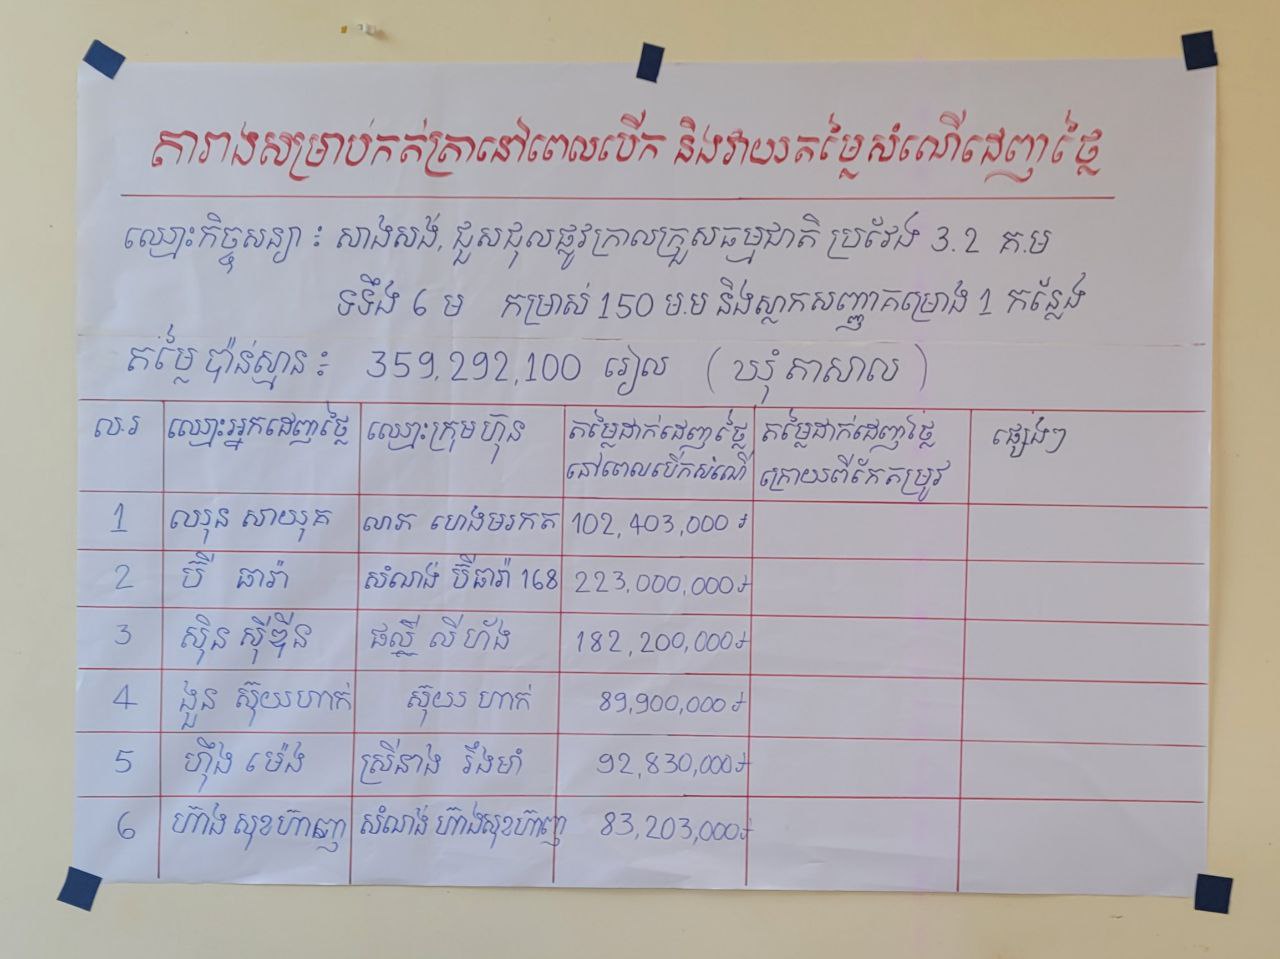 តារាងសម្រាប់កត់ត្រានៅពេលបើក និងវាយតម្លៃសំណើដេញថ្លៃ
ឈ្មោះកិច្ចសន្យា ៖ សាងសង់, ជួសជុលផ្លូវក្រាលក្រួសធម្មជាតិ ប្រវែង 3.2 គ.ម
ទទឹង 6 ម កម្រាស់ 150 ម.ម និងស្លាកសញ្ញាគម្រោង 1 កន្លែង
តម្លៃ ប៉ាន់ស្មាន ៖ 359,292,100 រៀល ( ឃុំ តាសាល )
ល.រ ឈ្មោះអ្នកដេញថ្លៃ ឈ្មោះក្រុមហ៊ុន តម្លៃដាក់ដេញថ្លៃ នៅពេលបើកសំណើ តម្លៃដាក់ដេញថ្លៃ ក្រោយពីកែតម្រូវ ផ្សេងៗ
1 ឈុន សាយុគ ហេងមរកត 102,403,000 ៛
2 ប៊ី ធារ៉ា សំណង់ ប៊ីធារ៉ា 168 223,000,000៛
3 ស៊ិន ស៊ីឌ្ទីន ផល្លី លីហ័ង 182,200,000៛
4 ងួន ស៊ុយហាក់ ស៊ុយ ហាក់ 89,900,000៛
5 ហ៊ឹង ម៉េង ស្រីនាង រឹងមាំ 92,830,000៛
6 ហ៊ាង សុខហ៊ាញ សំណង់ ហ៊ាងសុខហ៊ាញ 83,203,000៛